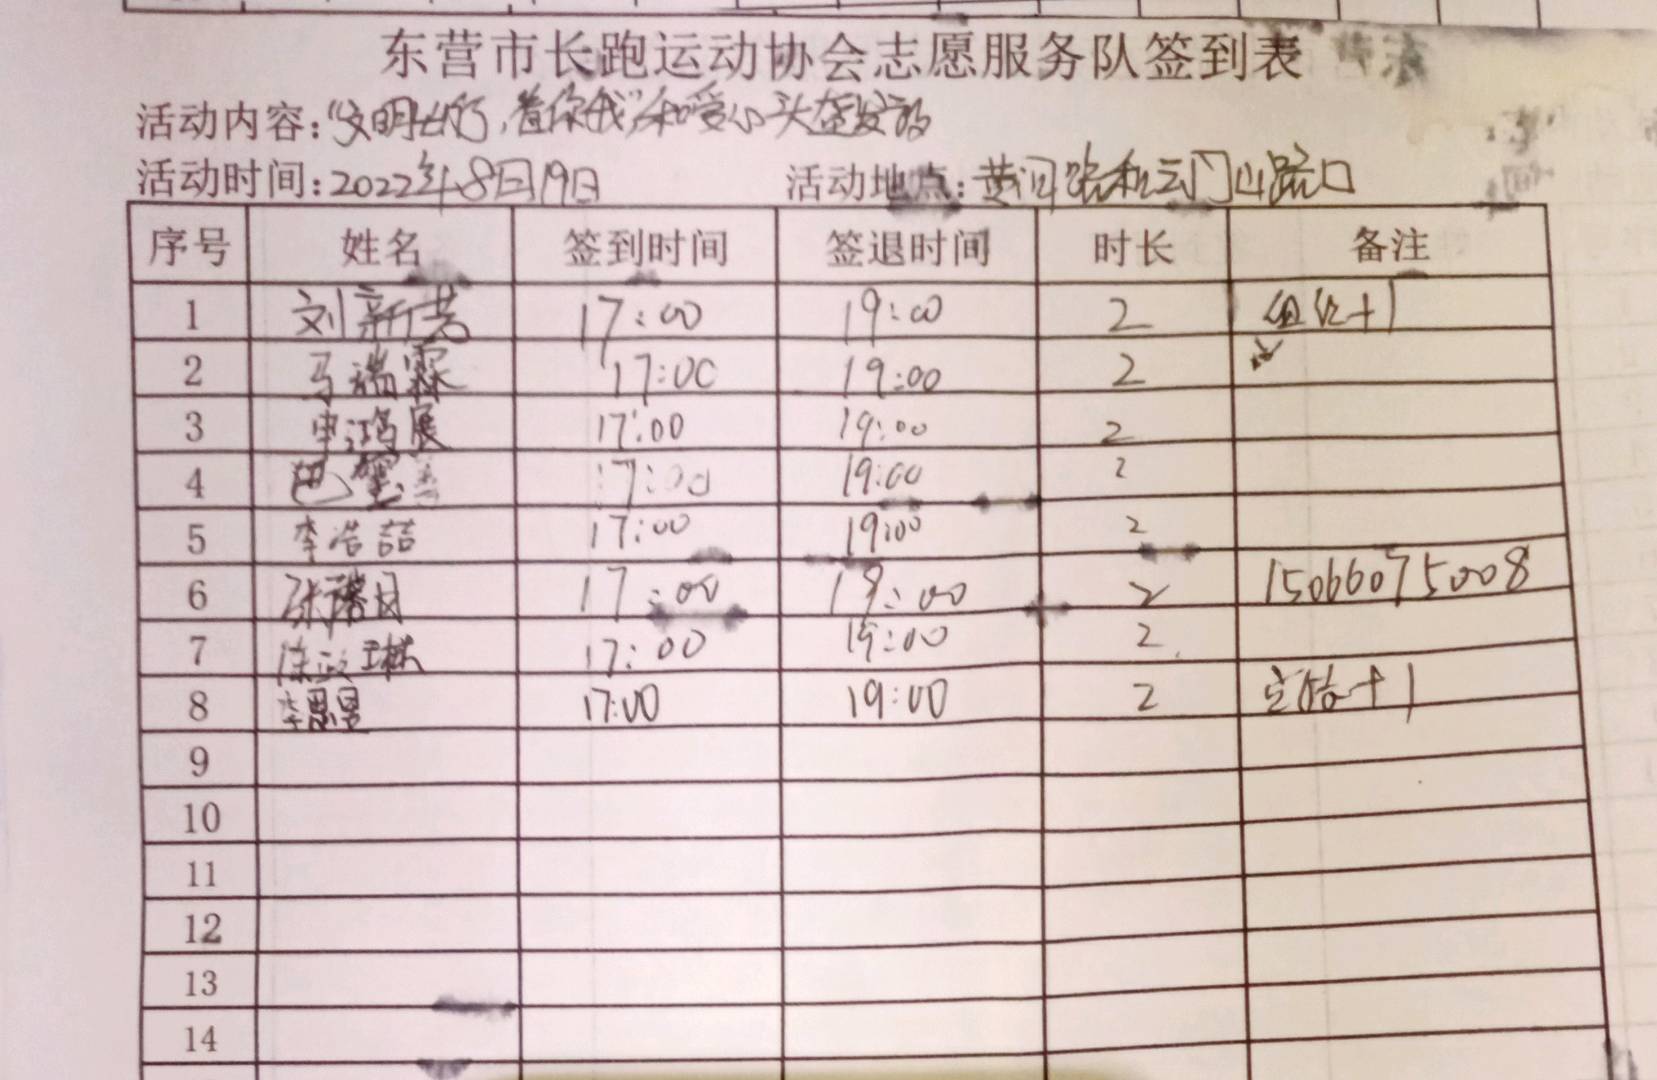 东营市长跑运动协会志愿服务队签到表
活动内容:"文明出行,着你我"和爱心头盔发放
活动时间:2022年8月19日 活动地点:黄河路和云门山路口
序号 姓名 签到时间 签退时间 时长 备注
1 刘新芸 17:00 19:00 2 组织+1
2 马瑞霖 17:00 19:00 2
3 申鸿展 17:00 19:00 2
4 17:00 19:00 2
5 李浩喆 17:00 19:00 2
6 17:00 19:00 2 15066075008
7 17:00 19:00 2
8 李思昱 17:00 19:00 2 总结+1
9
10
11
12
13
14